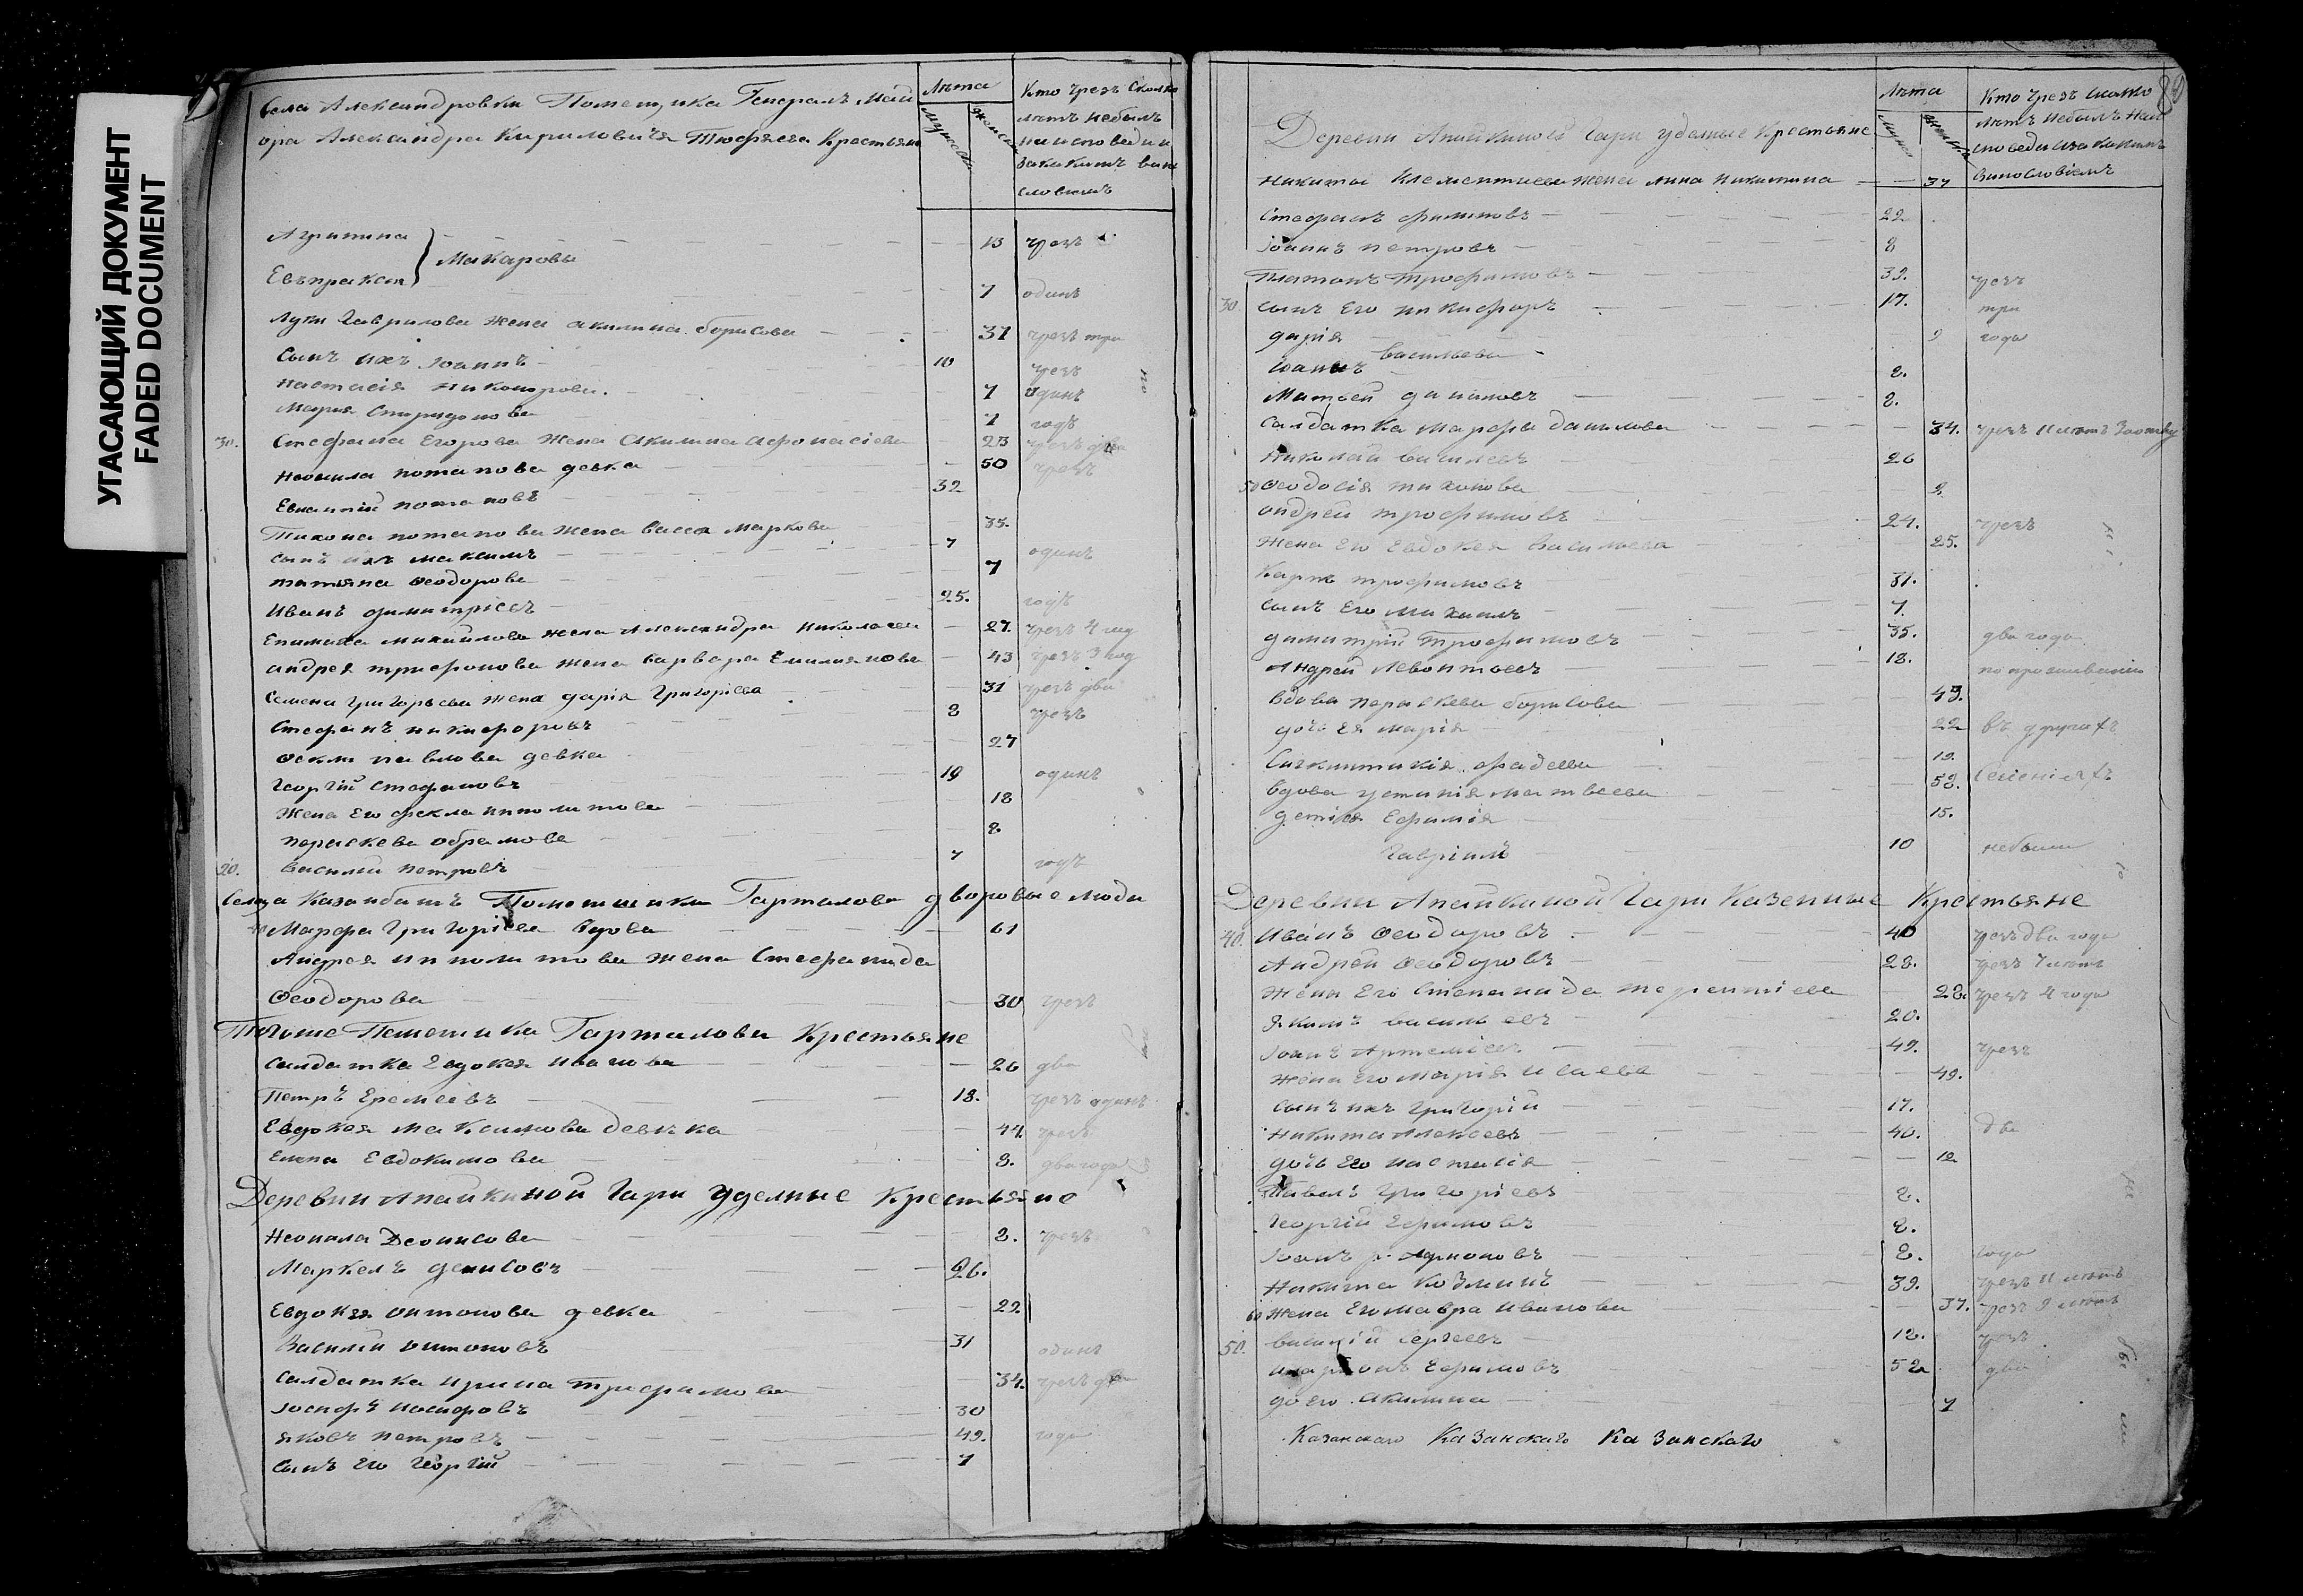 УГАСАЮЩИЙ ДОКУМЕНТ
FADED DOCUMENT
села Александровки Помещика Генералъ Маи
ора Александра Кириловича Тюфяева Крестьян
Лѣта
Мужеска
Женска
Кто чрезъ сколко
лѣтъ небылъ
на исповеди и
за какимъ вино
словиемъ
Агрипина
Макаровы
13 чрезъ
Евъпраксия
7 одинъ
Луки Гаврилова жена акилина борисова 37 чрезъ три
сынъ ихъ Iоаннъ 10 чрезъ
настасiя никонорова 7 одинъ
Мария Спиридонова 7 годъ
30. Стефана Егорова жена Акилина афонасiева 23 чрезъ два
неонила потапова девка 50 чрезъ
Евпатiй потаповъ 32
Тихона потапова жена васса маркова 35.
сынъ ихъ максимъ 7 одинъ
татьяна Ѳеодорова 7
Иванъ димитрiевъ 25. годъ
михаилова жена Александра николаева 27. чрезъ 4 год
андрея трифонова жена варвара Емилиянова 43 чрезъ 3 год
Семена григорьева жена дарiя Григорiева 31 чрезъ два
Стефанъ никифоровъ 8 чрезъ
Ѳекла павлова девка 27
Георгiй стефановъ 19 одинъ
жена его фекла иполитова 18
параскева абрамова 8
20. василий петровъ 7 годъ
Селца Казанбашъ Помещика Гарталова дворовые люди
Марфа Григорiева вдова 61
Андрея ипполитова жена Стефанида
Ѳеодорова 30 чрезъ
Тогоже Помещика Гарталова Крестьяне
салдатка Евдокея иванова 26 два
Петръ Еремеевъ 18. чрезъ одинъ
Евдокея максимова девъка 44. чрезъ
елена Евдокимова 8. два года
Деревни Апайкиной Гари уделные Крестьяне
неонила Деонисова 8. чрезъ
Маркелъ денисовъ 26.
Евдокея антонова девка 22.
Василий антоновъ 31 одинъ
салдатка ирина трифимова 34. чрезъ два
Iосифъ иосифовъ 30
яковъ петровъ 49. года
сынъ его Георгiй 7
Деревни Апайкиной гари уделные Крестьяне
Лѣта
Мужеска
Женска
Кто чрезъ сколко
лѣтъ небылъ наи
споведи иза какимъ
винословiемъ
никиты Клементиева жена анна никитина 37
стефанъ филиповъ 22
Iоаннъ петровъ 8
платонъ трофимовъ 39. чрезъ
30 сынъ его никифоръ 17. три
дарiя 9 года
васильевы
иоаннъ 8.
Матвей даниловъ 8.
салдатка марфа данилова 34. чрезъ 11 лѣтъ
николай василиевъ 26
50 Ѳеодосiя тихонова 9.
андрей трофимовъ 24. чрезъ
жена его Евдокея васильева 25.
Карпъ трофимовъ 31.
сынъ его михаилъ 7.
димитрiй трофимовъ 35. два года
Андрей Левонтьевъ 18. по проживанию
вдова параскева борисова 49.
дочь ея марiя 22 въ другихъ
Синклитикiя фадеева 19.
вдова устинiя матвеева 58. Селенияхъ
дети ея Ефимiя 15.
Гаврiилъ 10 небыли
Деревни Апайкиной Гари Казенные Крестьяне
40. иванъ Ѳеодоровъ 40 чрезъ два года
Андрей Ѳеодоровъ 28. чрезъ 7 лѣтъ
жена его степанида терентиева 28. чрезъ 4 года
якимъ васильевъ 20.
Iоаннъ Артемiевъ 49. чрезъ
жена его марiя исаева 49.
сынъ ихъ григорiй 17.
никита Алексеевъ 40. два
дочь его настасiя 12
Павелъ григорiевъ 8.
георгий Ефимовъ 8.
Iоаннъ 8. года
никита козминъ 39. чрезъ 11 лѣтъ
60 жена его мавра иванова 37. чрезъ 9 лѣтъ
50. василiй сергеевъ 18. чрезъ
иларионъ Ефимовъ 52 два
до его акилина 7
Казанскаго Казанскаго Казанскаго